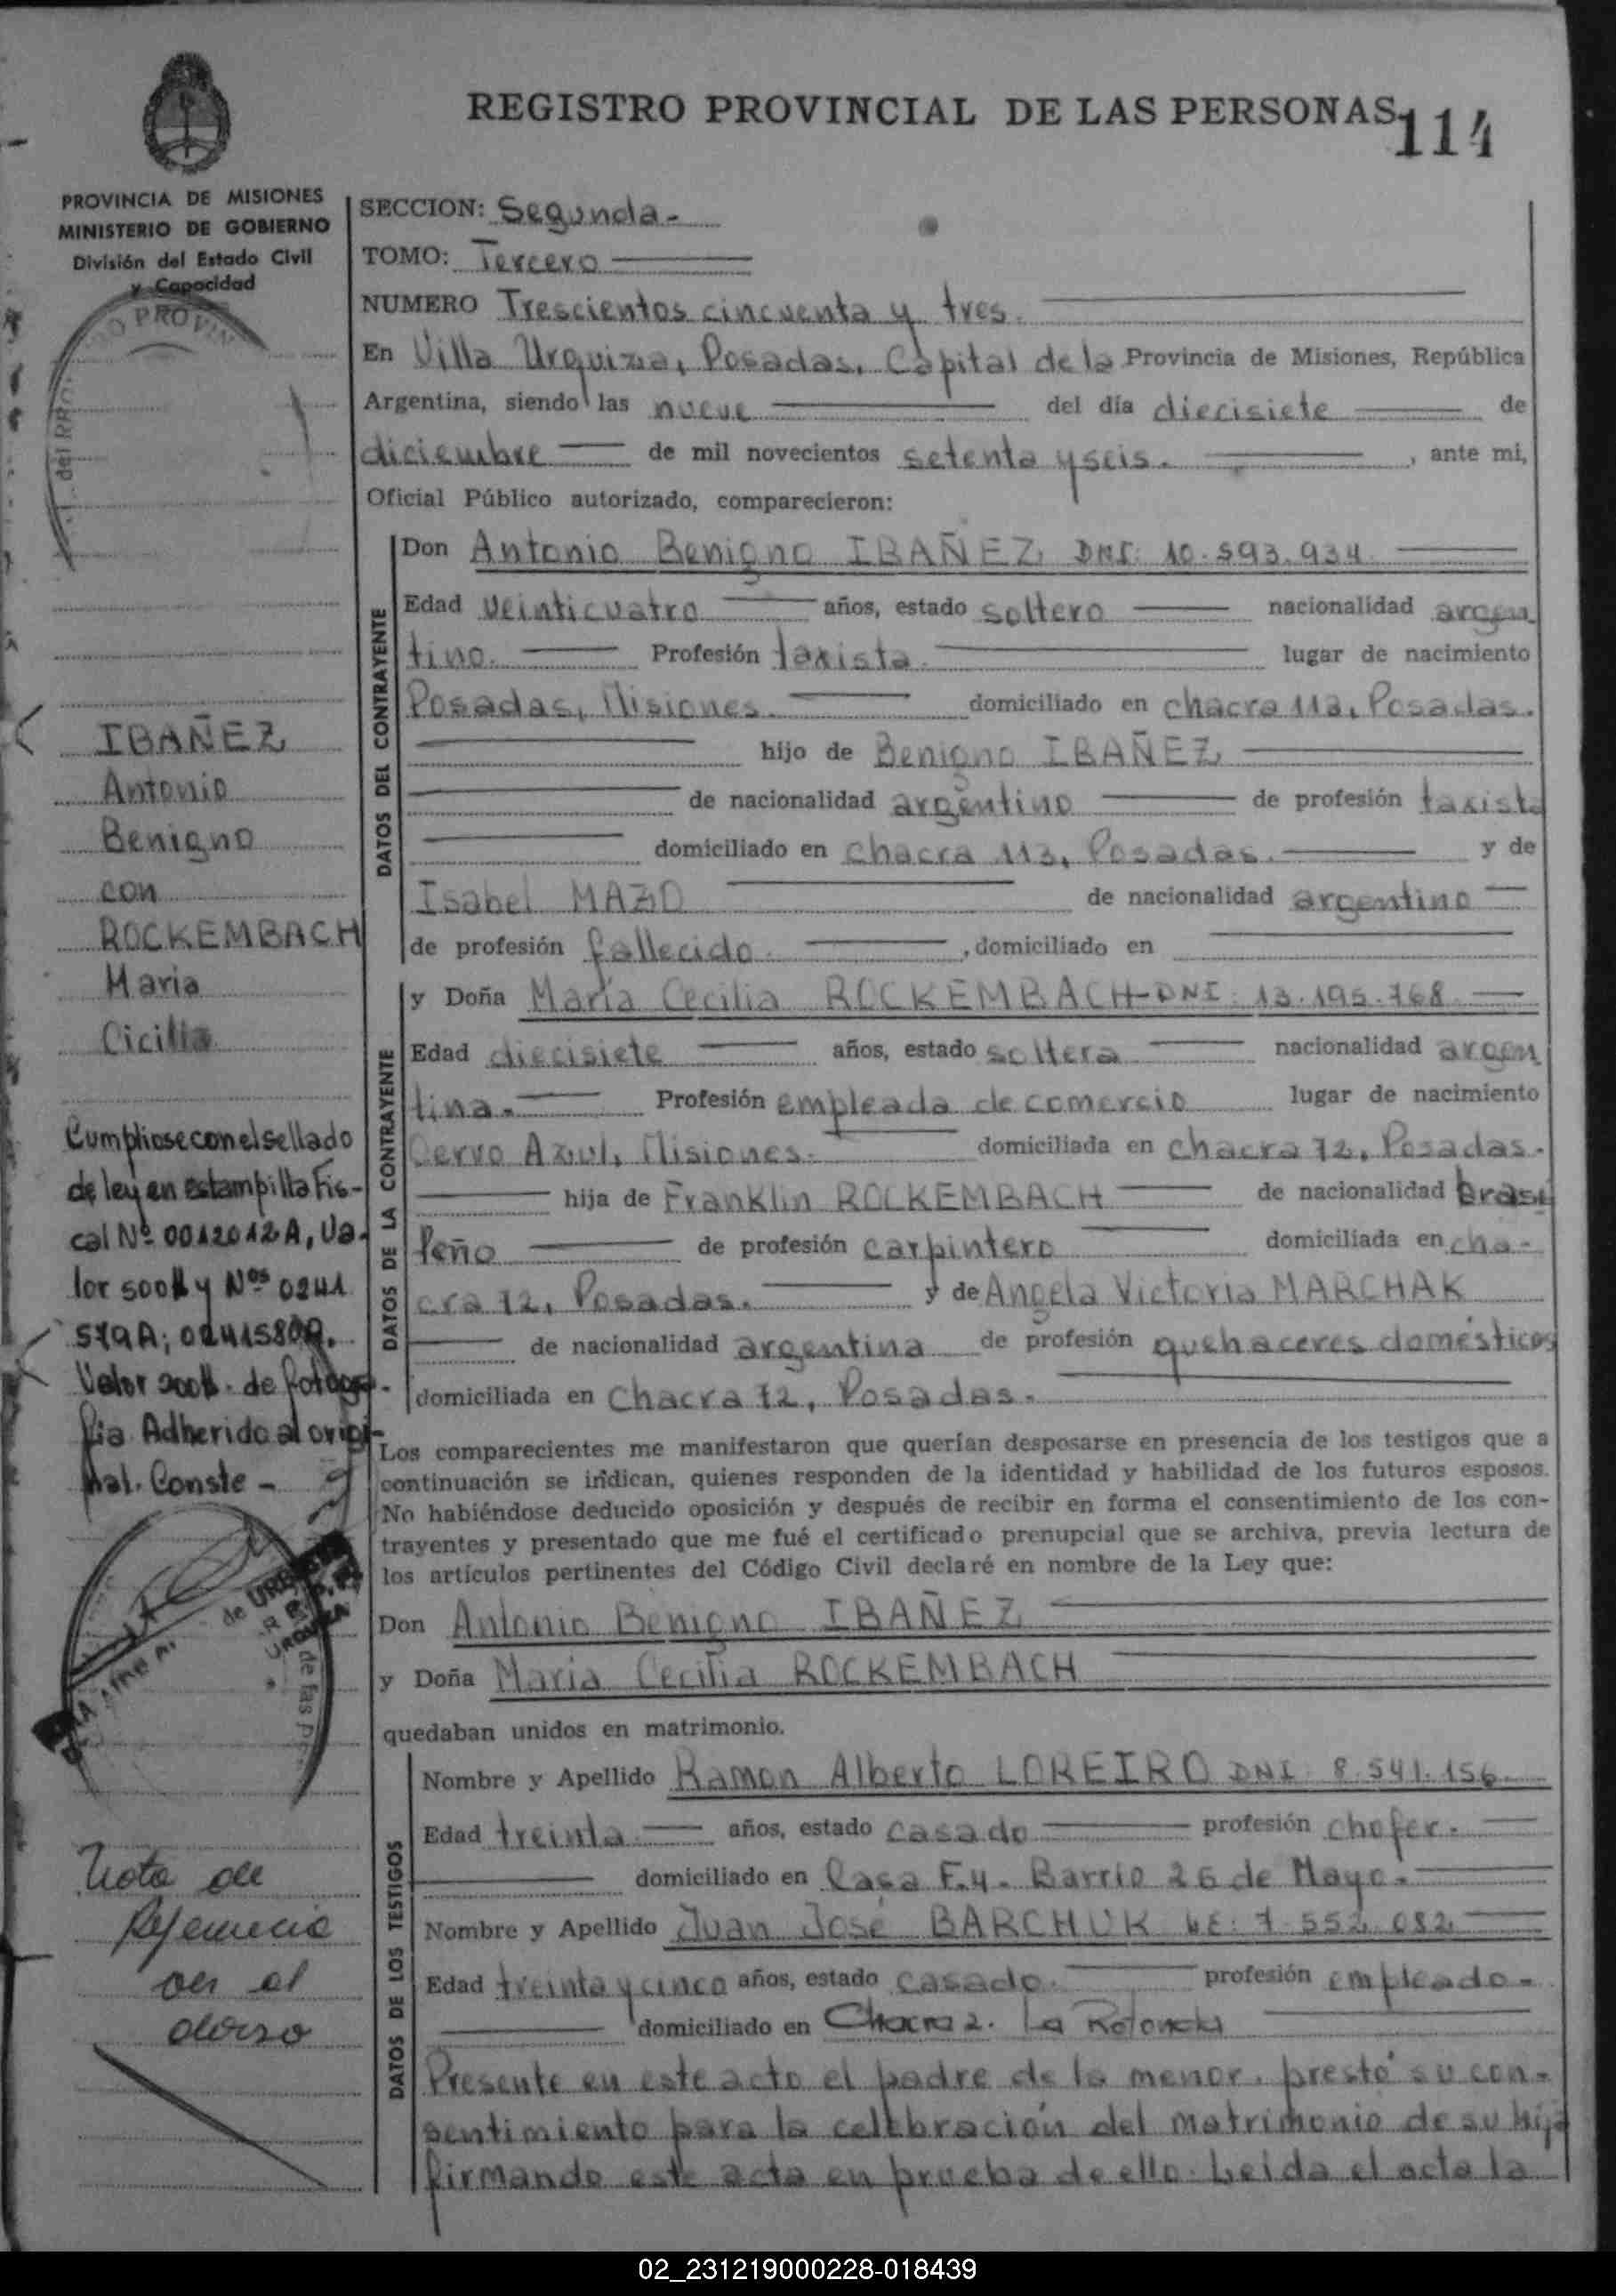 REGISTRO PROVINCIAL DE LAS PERSONAS
114
PROVINCIA DE MISIONES
MINISTERIO DE GOBIERNO
División del Estado Civil
y Capacidad
SECCION: Segunda.-
TOMO: Tercero
NUMERO Trescientos cincuenta y tres.
En Villa Urquiza, Posadas, Capital de la Provincia de Misiones, República
Argentina, siendo las nueve del día diecisiete de
diciembre de mil novecientos setenta y seis. , ante mi,
Oficial Público autorizado, comparecieron:
DATOS DEL CONTRAYENTE
Don Antonio Benigno IBAÑEZ, DNI: 10.593.934
Edad veinticuatro años, estado soltero nacionalidad argen
tino. Profesión taxista. lugar de nacimiento
Posadas, Misiones. domiciliado en chacra 113, Posadas.
hijo de Benigno IBAÑEZ
de nacionalidad argentino de profesión taxista
domiciliado en chacra 113, Posadas. y de
Isabel MAZO de nacionalidad argentino
de profesión fallecido. , domiciliado en
DATOS DE LA CONTRAYENTE
y Doña María Cecilia ROCKEMBACH-DNI: 13.195.768
Edad diecisiete años, estado soltera nacionalidad argen
tina.- Profesión empleada de comercio lugar de nacimiento
Cerro Azul, Misiones. domiciliada en chacra 72, Posadas.
hija de Franklin ROCKEMBACH de nacionalidad brasi
leño de profesión carpintero domiciliada en cha-
cra 72, Posadas. y de Angela Victoria MARCHAK
de nacionalidad argentina de profesión quehaceres domésticos
domiciliada en chacra 72, Posadas.
Los comparecientes me manifestaron que querían desposarse en presencia de los testigos que a
continuación se indican, quienes responden de la identidad y habilidad de los futuros esposos.
No habiéndose deducido oposición y después de recibir en forma el consentimiento de los con-
trayentes y presentado que me fué el certificado prenupcial que se archiva, previa lectura de
los artículos pertinentes del Código Civil declaré en nombre de la Ley que:
Don Antonio Benigno IBAÑEZ
y Doña María Cecilia ROCKEMBACH
quedaban unidos en matrimonio.
DATOS DE LOS TESTIGOS
Nombre y Apellido Ramon Alberto LOREIRO DNI 8.541.156
Edad treinta años, estado casado profesión chofer.
domiciliado en Casa F.4. Barrio 26 de Mayo.
Nombre y Apellido Juan José BARCHUK LE: 7.552.082
Edad treinta y cinco años, estado casado. profesión empleado.
domiciliado en Chacra 2. La Rotonda
Presente en este acto el padre de la menor, prestó su con-
sentimiento para la celebración del matrimonio de su hija
firmando este acta en prueba de ello. Leida el acta la
IBAÑEZ
Antonio
Benigno
con
ROCKEMBACH
Maria
Cicilia
Cumpliose con el sellado
de ley en estampilla Fis-
cal Nº 0012012 A, Va-
lor 500$ y Nos 0241
579A; 0241580A.
Valor 200$. de fotogra-
fia Adherido al origi-
nal. Conste -
Nota de
Referencia
en el
dorso
02_231219000228-018439